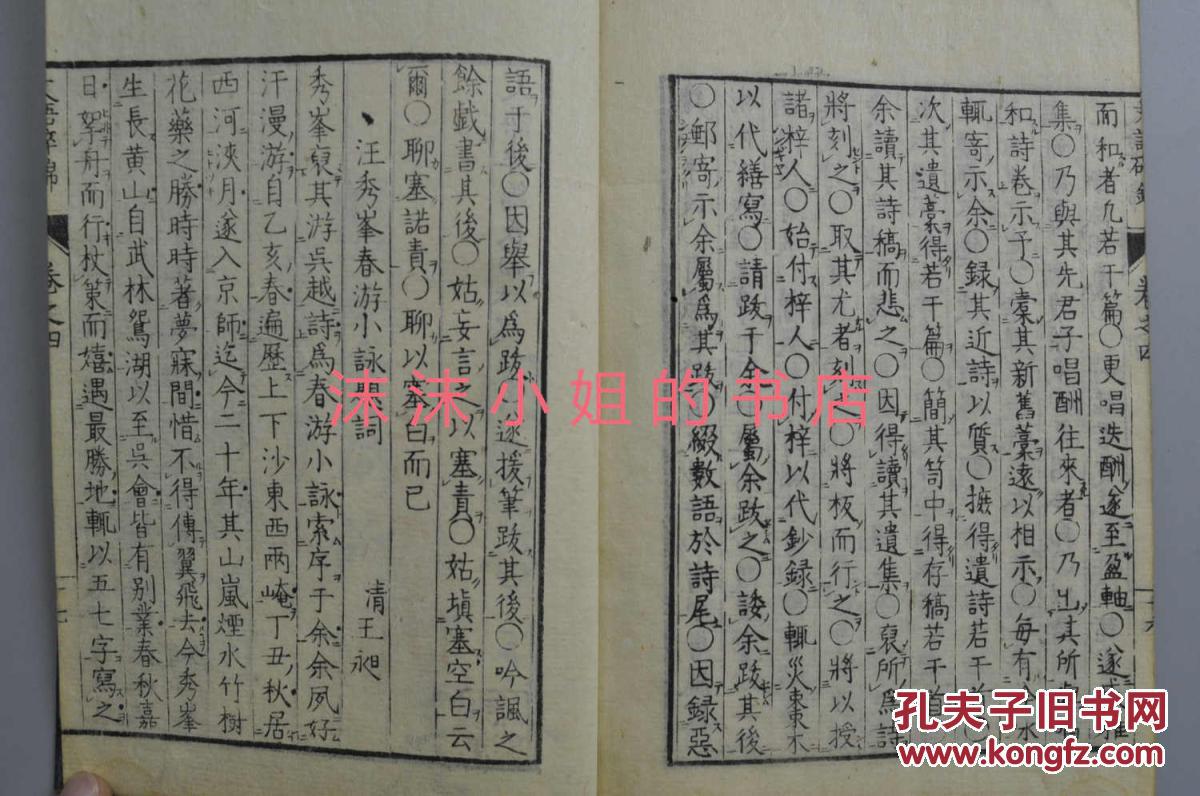 而和者凡若干篇○更唱迭酬遂至盈軸○遂
集○乃與其先君子唱酬往來者○乃出其所
和詩卷示予○橐其新舊藁遠以相示○每有
輒寄示余○錄其近詩以質○摭得遺詩若干
次其遺藁得若干篇○簡其笥中得存稿若干首
余讀其詩稿而悲之○因得讀其遺集○裒所爲詩
將刻之○取其尤者刻○將板而行之○將以授
諸梓人○始付梓人○付梓以代鈔錄○輒災棗東不
以代繕寫○請跋于余○屬余跋之○諉余跋其後
○郵寄示余屬爲其跋○綴數語於詩尾○因錄惡
卷之四
語于後○因舉以爲跋○遂援筆跋其後○吟諷之
餘戲書其後○姑妄言之以塞責○姑塡塞空白云
爾○聊塞諾責○聊以塞白而已
汪秀峯春游小詠題詞
清王昶
秀峯裒其游吳越詩爲春游小詠索序于余余夙好
汗漫游自乙亥春遍歷上下沙東西兩崦丁丑秋居
西河浹月遂入京師迄今二十年其山嵐煙水竹樹
花藥之勝時時著夢寐間惜不得傳翼飛去今秀峯
生長黃山自武林鴛湖以至吳會皆有别業春秋嘉
日拏舟而行杖策而嬉遇最勝地輒以五七字寫之
卷之四
沫沫小姐的书店
孔夫子旧书网
www.kongfz.com